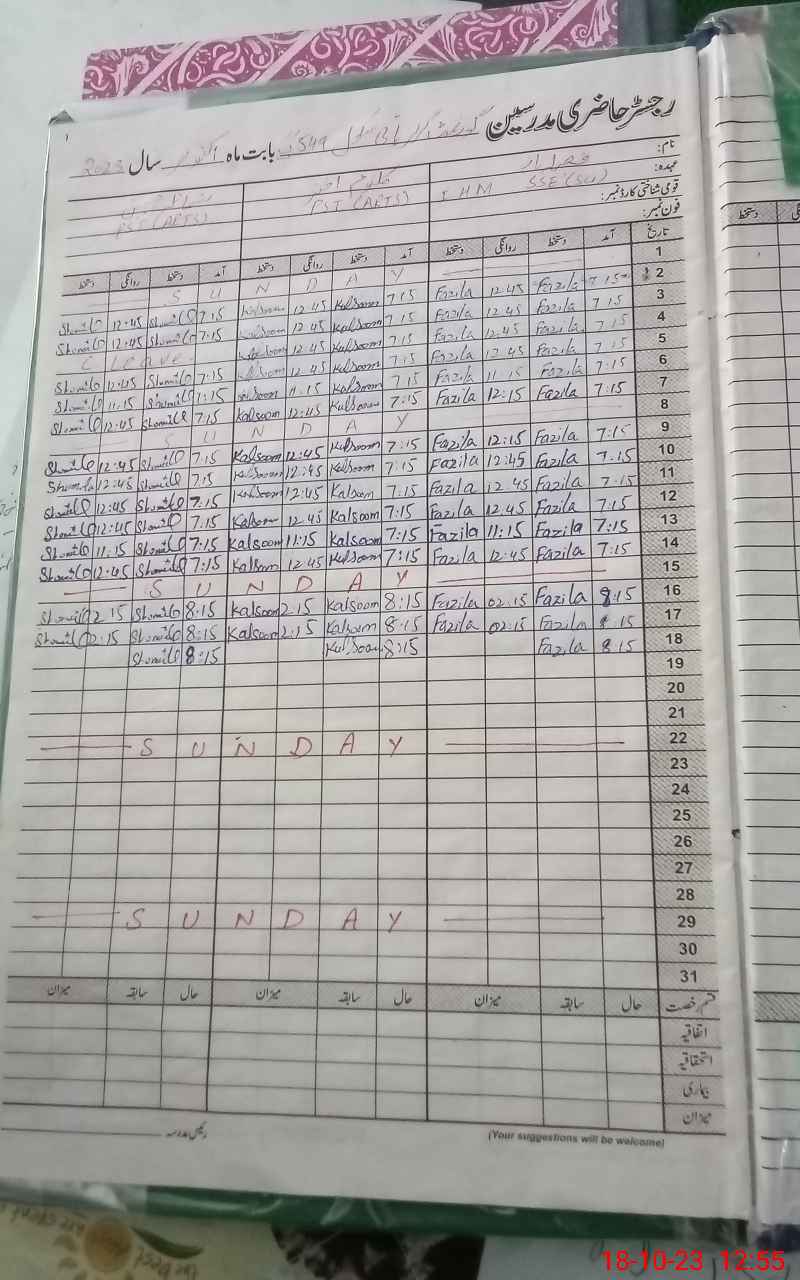 رجسٹر حاضری مدرسین گورنمنٹ گرلز 549 بابت ماہ اکتوبر سال 2023
نام:
عہدہ: SSE (SCI) I HM PST (ARTS) PST (ARTS)
قومی شناختی کارڈ نمبر:
فون نمبر:
تاریخ آمد دستخط روانگی دستخط آمد دستخط روانگی دستخط آمد دستخط روانگی دستخط
S U N D A Y 1
Shomila 12:45 Shomila 7:15 Kalsoom 12:45 Kalsoom 7:15 Fazila 12:45 Fazila 7:15 2
Shomila 12:45 Shomila 7:15 Kalsoom 12:45 Kalsoom 7:15 Fazila 12:45 Fazila 7:15 3
C Leave. Kalsoom 12:45 Kalsoom 7:15 Fazila 12:45 Fazila 7:15 4
Shomila 12:45 Shomila 7:15 Kalsoom 12:45 Kalsoom 7:15 Fazila 12:45 Fazila 7:15 5
Shomila 11:15 Shomila 7:15 Kalsoom 11:15 Kalsoom 7:15 Fazila 11:15 Fazila 7:15 6
Shomila 12:45 Shomila 7:15 Kalsoom 12:45 Kulsoom 7:15 Fazila 12:15 Fazila 7:15 7
S U N D A Y 8
Shomila 12:45 Shomila 7:15 Kalsoom 12:45 Kulsoom 7:15 Fazila 12:15 Fazila 7:15 9
Shomila 12:45 Shomila 7:15 Kalsoom 12:45 Kalsoom 7:15 Fazila 12:45 Fazila 7:15 10
Shomila 12:45 Shomila 7:15 Kalsoom 12:45 Kalsoom 7:15 Fazila 12:45 Fazila 7:15 11
Shomila 12:45 Shomila 7:15 Kalsoom 12:45 Kalsoom 7:15 Fazila 12:45 Fazila 7:15 12
Shomila 11:15 Shomila 7:15 Kalsoom 11:15 Kalsoom 7:15 Fazila 11:15 Fazila 7:15 13
Shomila 12:45 Shomila 7:15 Kalsoom 12:45 Kalsoom 7:15 Fazila 12:45 Fazila 7:15 14
S U N D A Y 15
Shomila 2:15 Shomila 8:15 Kalsoom 2:15 Kalsoom 8:15 Fazila 02:15 Fazila 8:15 16
Shomila 02:15 Shomila 8:15 Kalsoom 2:15 Kalsoom 8:15 Fazila 02:15 Fazila 8:15 17
Shomila 8:15 Kulsoom 8:15 Fazila 8:15 18
19
20
21
S U N D A Y 22
23
24
25
26
27
28
S U N D A Y 29
30
31
قسم رخصت حال سابقہ میزان حال سابقہ میزان حال سابقہ میزان
اتفاقیہ
استحقاقیہ
بیماری
میزان
رئیس مدرسہ
(Your suggestions will be welcome)
دستخط
18-10-23 12:55